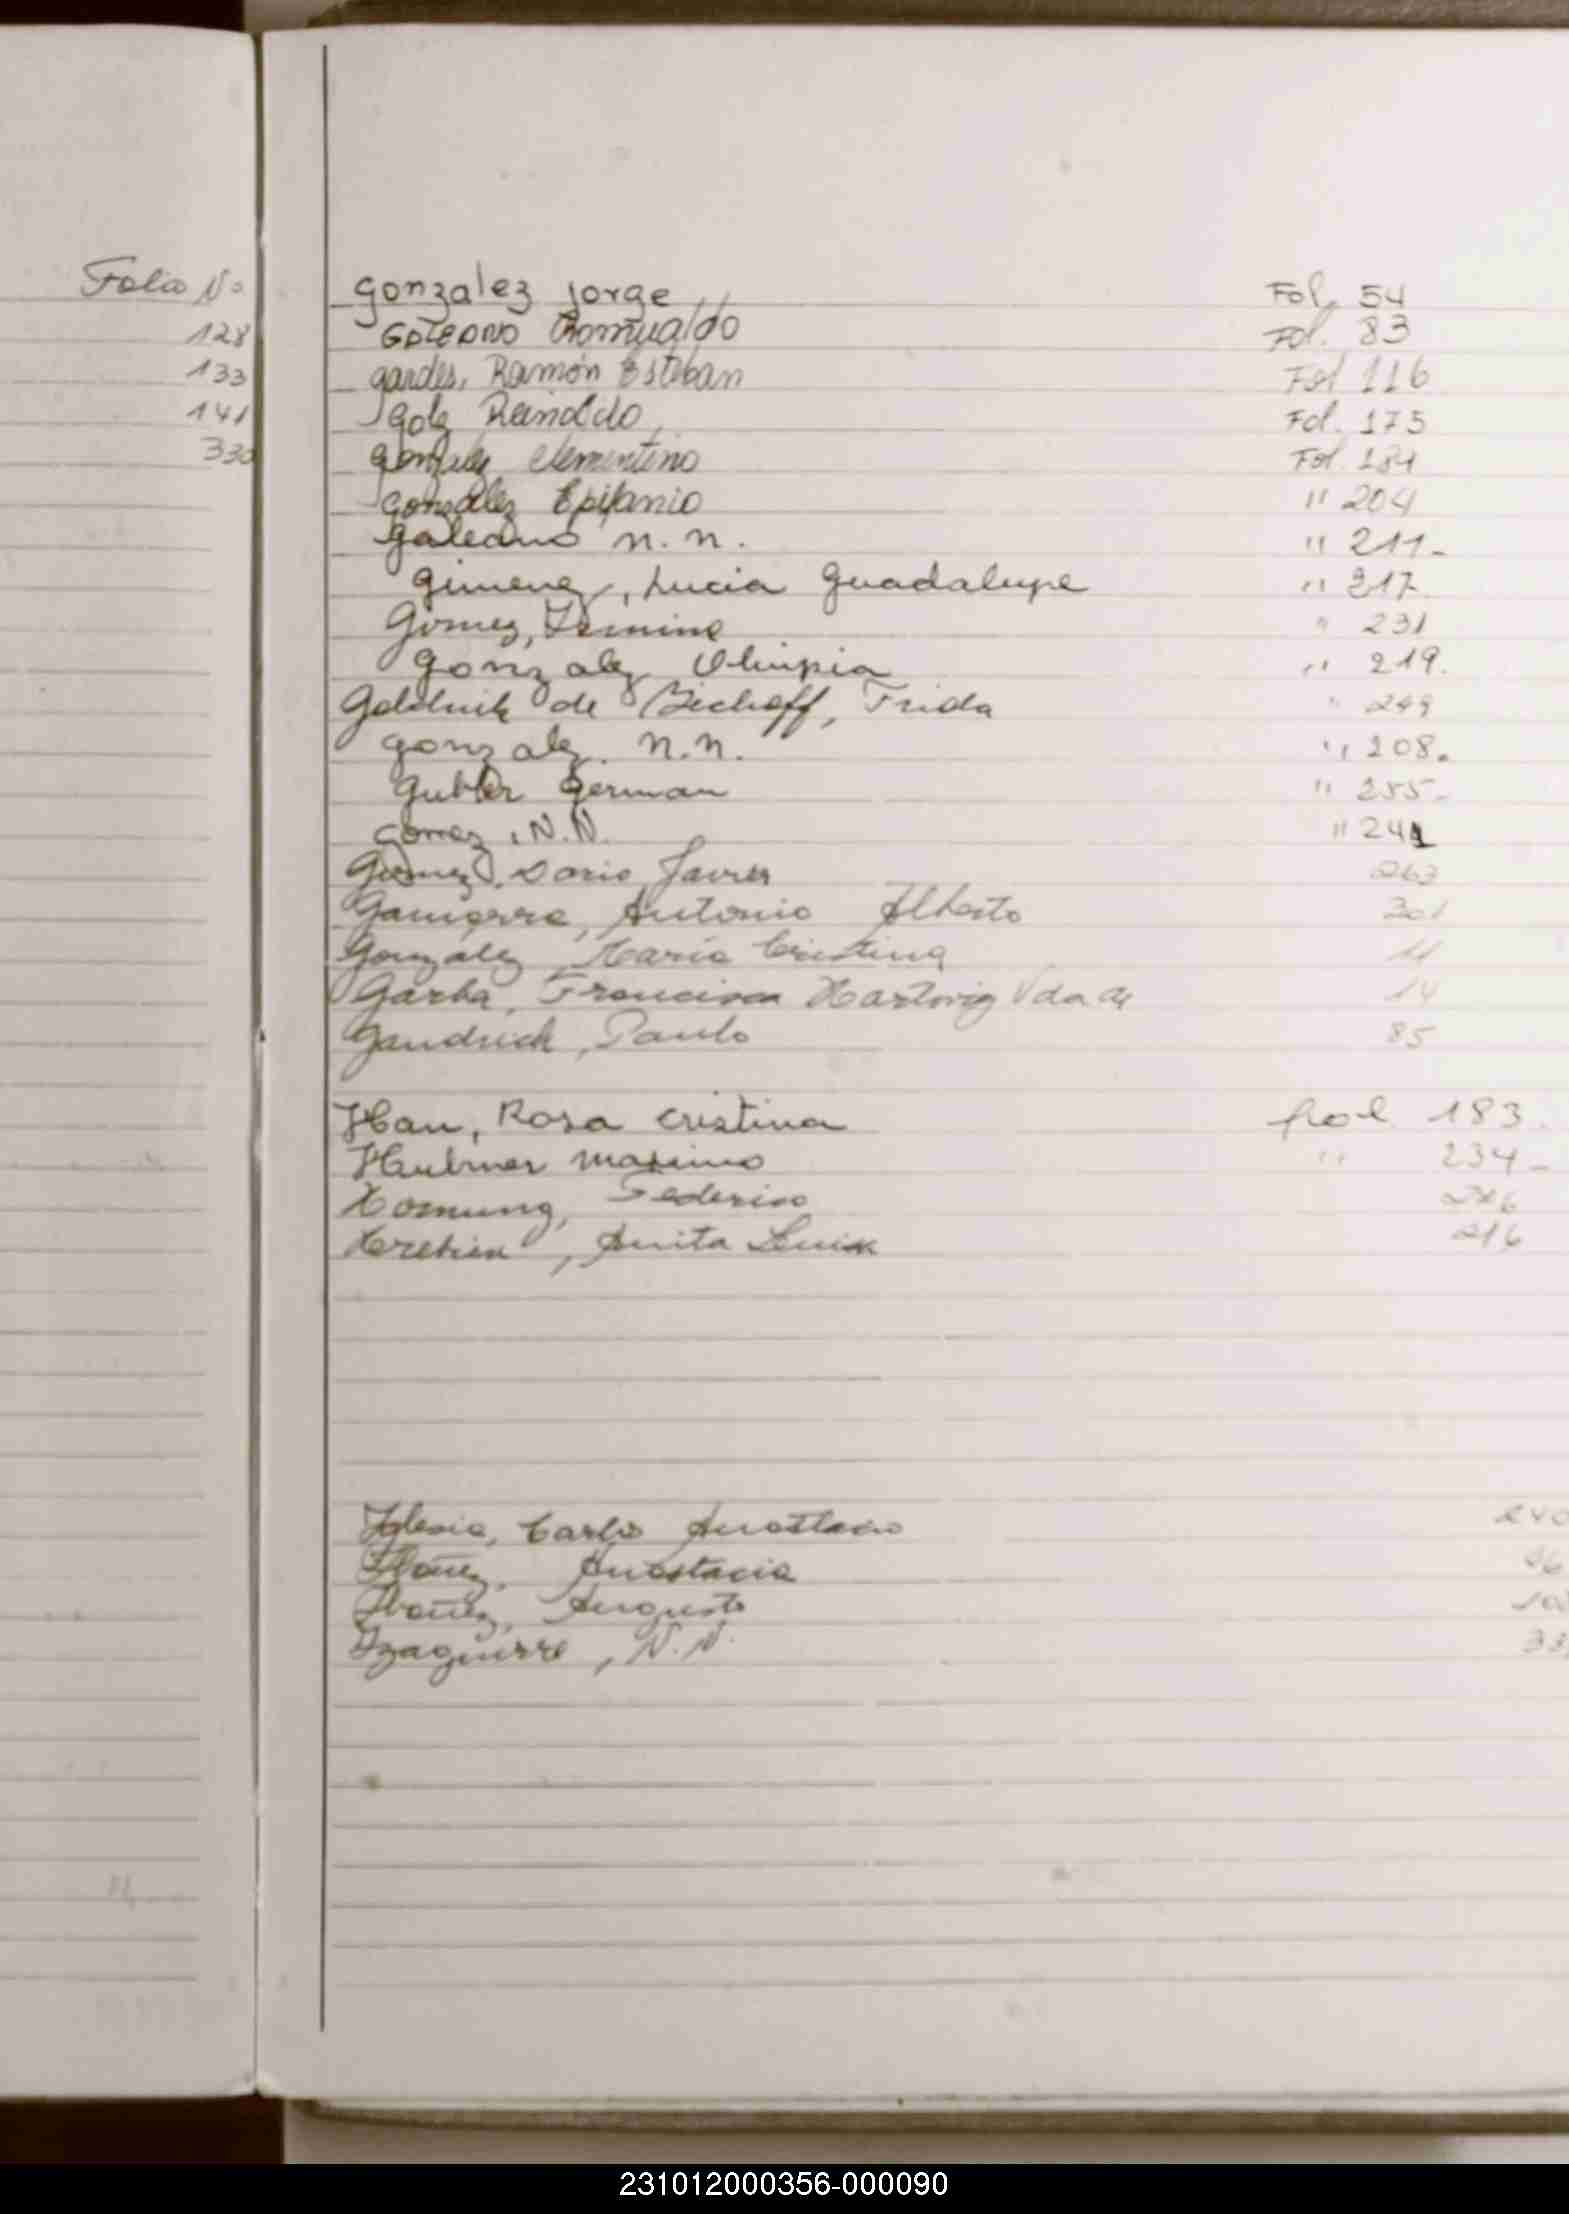 Folio No
128
133
141
330
Gonzalez Jorge Fol. 54
Galeano Romualdo Fol. 83
Gardes, Ramón Esteban Fol 116
Golz Reinoldo Fol. 175
Gonzalez Clementino Fol. 184
González Epifanio " 204
Galeano n.n. " 211-
Gimenez, Lucia Guadalupe " 317
Gomez, Irmina " 231
Gonzalez Olimpia " 219.
de Bischoff, Frida " 249
Gonzalez. n.n. " 208.
Gubler German " 255-
Gomez, N.N. " 241
Gomez, Dario Javier 263
Gamarra, Antonio Alberto 301
Gonzalez, Maria Cristina 11
Garba, Francisca Hartwig Vda de 14
Gaudrick, Paulo 85
Han, Rosa Cristina fol 183.
Hubner Maximo " 234-
Hornung, Federico
, Anita Luisa 216
Iglesia, Carlos Anastacio 240
Ibañez, Anastacia
Ibañez, Augusto
Izaguirre, N.N. 33
231012000356-000090